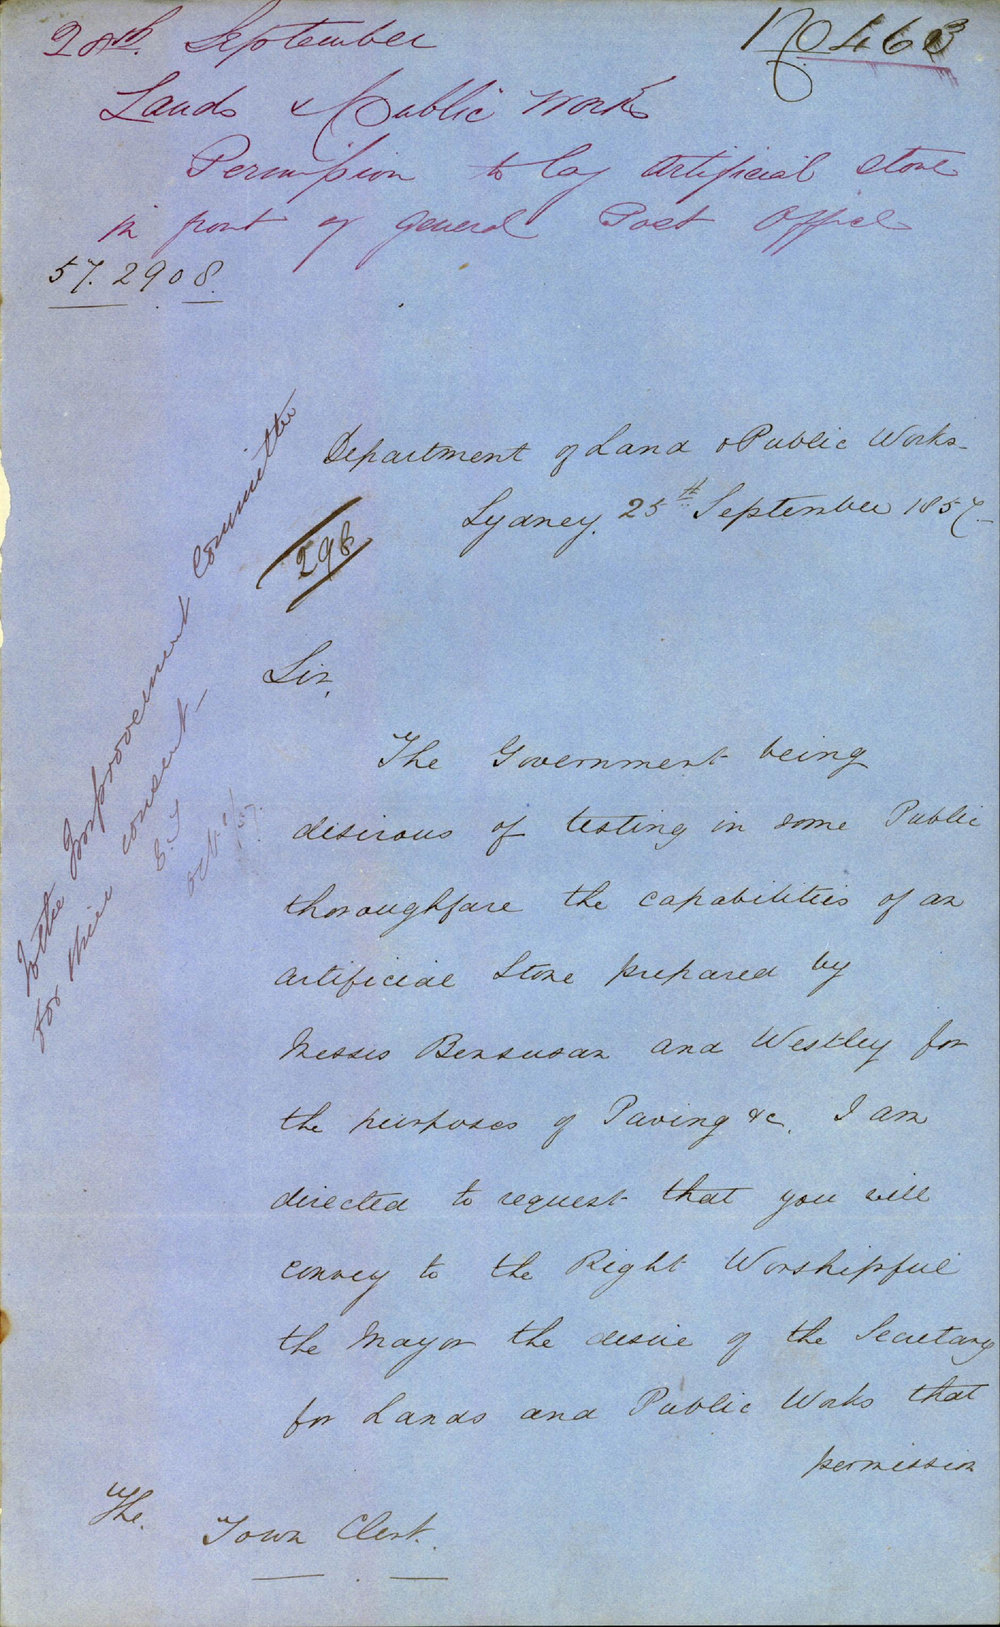 28th. September
No 463
Lands & Public Works
Permission to lay artificial stone
in front of general Post Office
57. 2908.
Department of Land & Public Works
Sydney. 25th September 1857
298
Sir,
The Government being
desirous of testing in some Public
thoroughfare the capabilities of an
artificial Stone prepared by
Messrs Bensusan and Westley for
the purposes of Paving &c. I am
directed to request that you will
convey to the Right Worshipful
the Mayor the desire of the Secretary
for Lands and Public Works that
permission
The.
Town Clerk.
To the Improvement Committee
for their consent
Oct. 1/57.